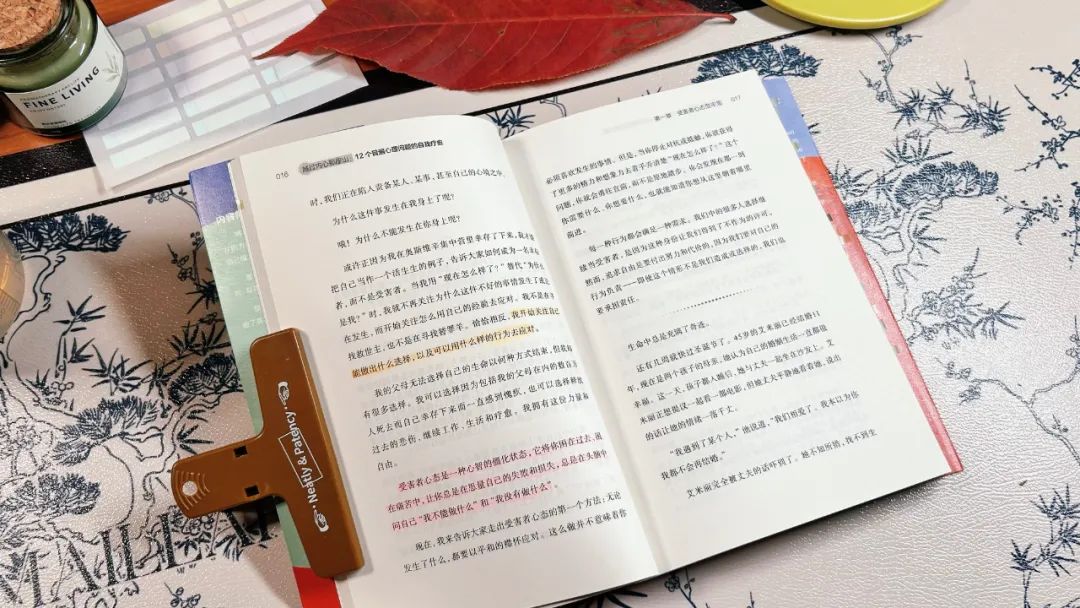 FINE LIVING
016
越过内心那座山
12个普遍心理问题的自我疗愈
时，我们正在陷入责备某人、某事，甚至自己的心境之中。
为什么这件事发生在我身上了呢？
哦！为什么不能发生在你身上呢？
或许正因为我在奥斯维辛集中营里幸存了下来，我才能
把自己当作一个活生生的例子，告诉大家如何成为一名幸存
者，而不是受害者。当我用“现在怎么样了？”替代“为什么
是我？”时，我就不再关注为什么这件不好的事情发生了或正
在发生，而开始关注怎么用自己的经验去应对。我不是在寻
找救世主，也不是在寻找替罪羊。恰恰相反，我开始关注自己
能做出什么选择，以及可以用什么样的行为去应对。
我的父母无法选择自己的生命以何种方式结束，但我却
有很多选择。我可以选择因为包括我的父母在内的数百万
人死去而自己幸存下来而一直感到愧疚，也可以选择释放
过去的悲伤，继续工作、生活和疗愈。我拥有这份力量和
自由。
受害者心态是一种心智的僵化状态，它将你困在过去、困
在痛苦中，让你总是在思量自己的失败和损失，总是在头脑中
问自己“我不能做什么”和“我没有做什么”。
现在，我来告诉大家走出受害者心态的第一个方法：无论
发生了什么，都要以平和的襟怀应对。这么做并不意味着你
Neatty & Patency
第一章 受害者心态型牢笼
017
必须喜欢发生的事情。但是，当你停止对抗或抵触，你就获得
了更多的精力和想象力去着手弄清楚“现在怎么样了？”这个
问题，你就会勇往直前，而不是原地踏步。你会发现在那一刻
你需要什么、你想要什么，也就能知道你想从这里朝着哪里
前进。
每一种行为都会满足一种需求。我们中的很多人选择继
续当受害者，是因为这种身份让我们得到了不作为的许可。
然而，追求自由是要付出努力和代价的，因为我们要对自己的
行为负责——即使这个情形不是我们造成或选择的，我们也
要承担责任。
生命中总是充满了奇遇。
还有几周就快过圣诞节了。45岁的艾米丽已经结婚11
年，现在是两个孩子的母亲。她认为自己的婚姻生活一直都很
幸福。这一天，孩子都入睡后，她与丈夫一起坐在沙发上。艾
米丽正想提议一起看一部电影，但她丈夫平静地看着她，说出
的话让他的情绪一落千丈。
“我遇到了某个人，”他说道，“我们相爱了。我本以为你
我都不会再结婚。”
艾米丽完全被丈夫的话吓到了。她不知所措，找不到生